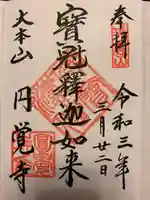 奉拝
令和三年
三月廿二日
寳冠釋迦如来
大本山
円覚寺